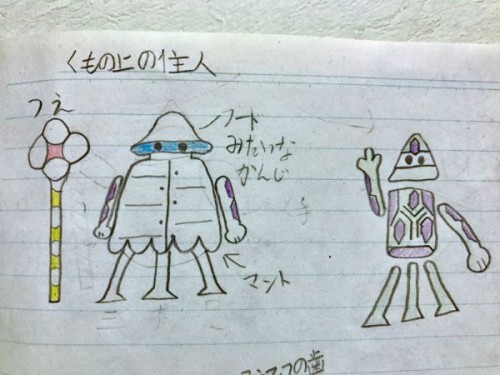 くもの上の住人
つえ
フード
みたいな
かんじ
マント
の歯